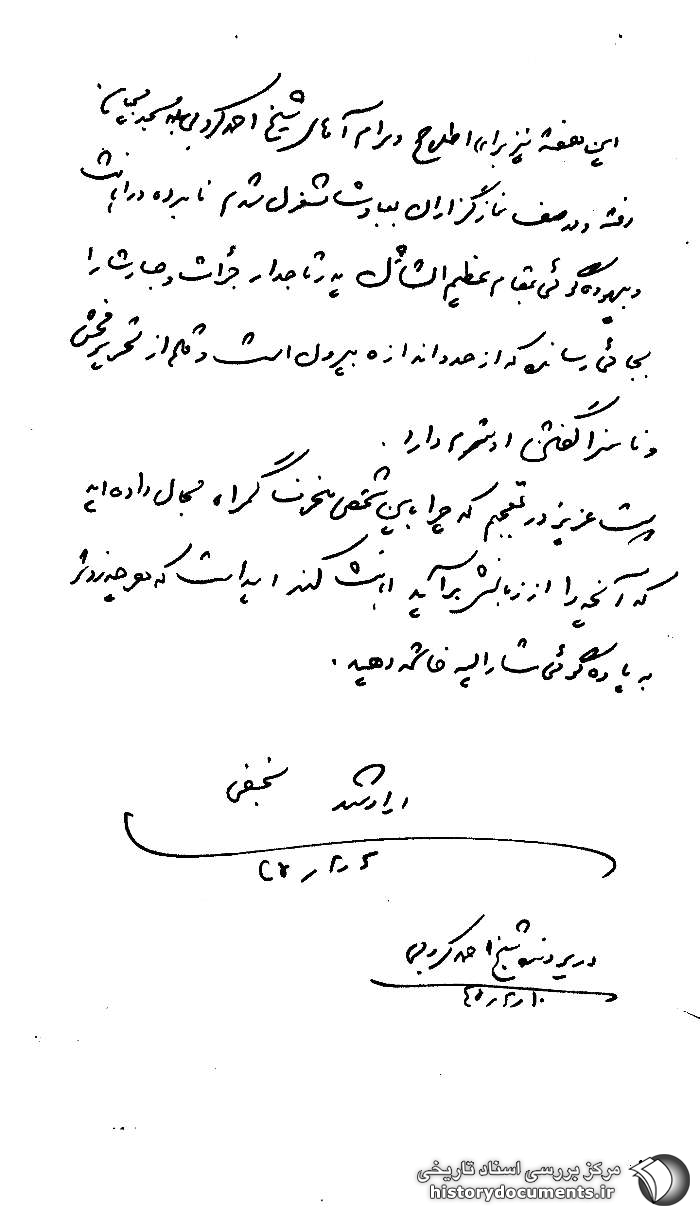 این هفته نیز برای اطلاع و مرام آقای شیخ احمد کروبی به مسجد
رفته و در صف نمازگزاران بعبادت مشغول شدم نامبرده در اهانت
و بیهوده گوئی بمقام عظیم الشأن پدر تاجدار جرأت و جسارت را
بجائی رسانده که از حد و اندازه بیرون است و قلم از تحریر فحش
و ناسزا گفتن او شرم دارد .
عزیز در تعجبم که چرا باین شخص منحرف گمراه مجال داده اید
که آنچه را از زبانش برآید اهانت کند امید است که هر چه زودتر
به یاوه گوئی مشارالیه خاتمه دهید .
ارادتمند نجفی
در پرونده شیخ احمد کروبی
مرکز بررسی اسناد تاریخی
historydocuments.ir